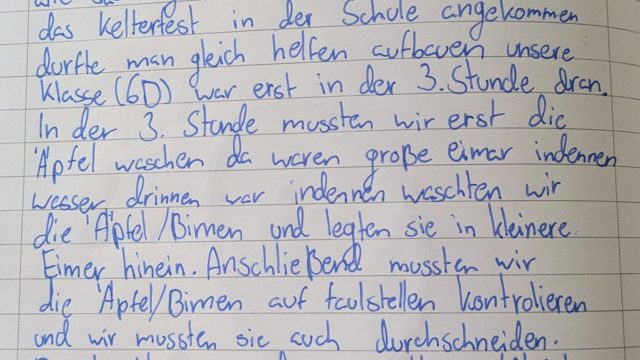 das Kelterfest in der Schule angekommen
durfte man gleich helfen aufbauen unsere
Klasse (6D) war erst in der 3. Stunde dran.
In der 3. Stunde mussten wir erst die
Äpfel waschen da waren große eimar indennen
wasser drinnen war indennen waschten wir
die Äpfel/Birnen und legten sie in kleinere
Eimer hinein. Anschließend mussten wir
die Äpfel/Birnen auf faulstellen kontrolieren
und wir mussten sie auch durchschneiden.